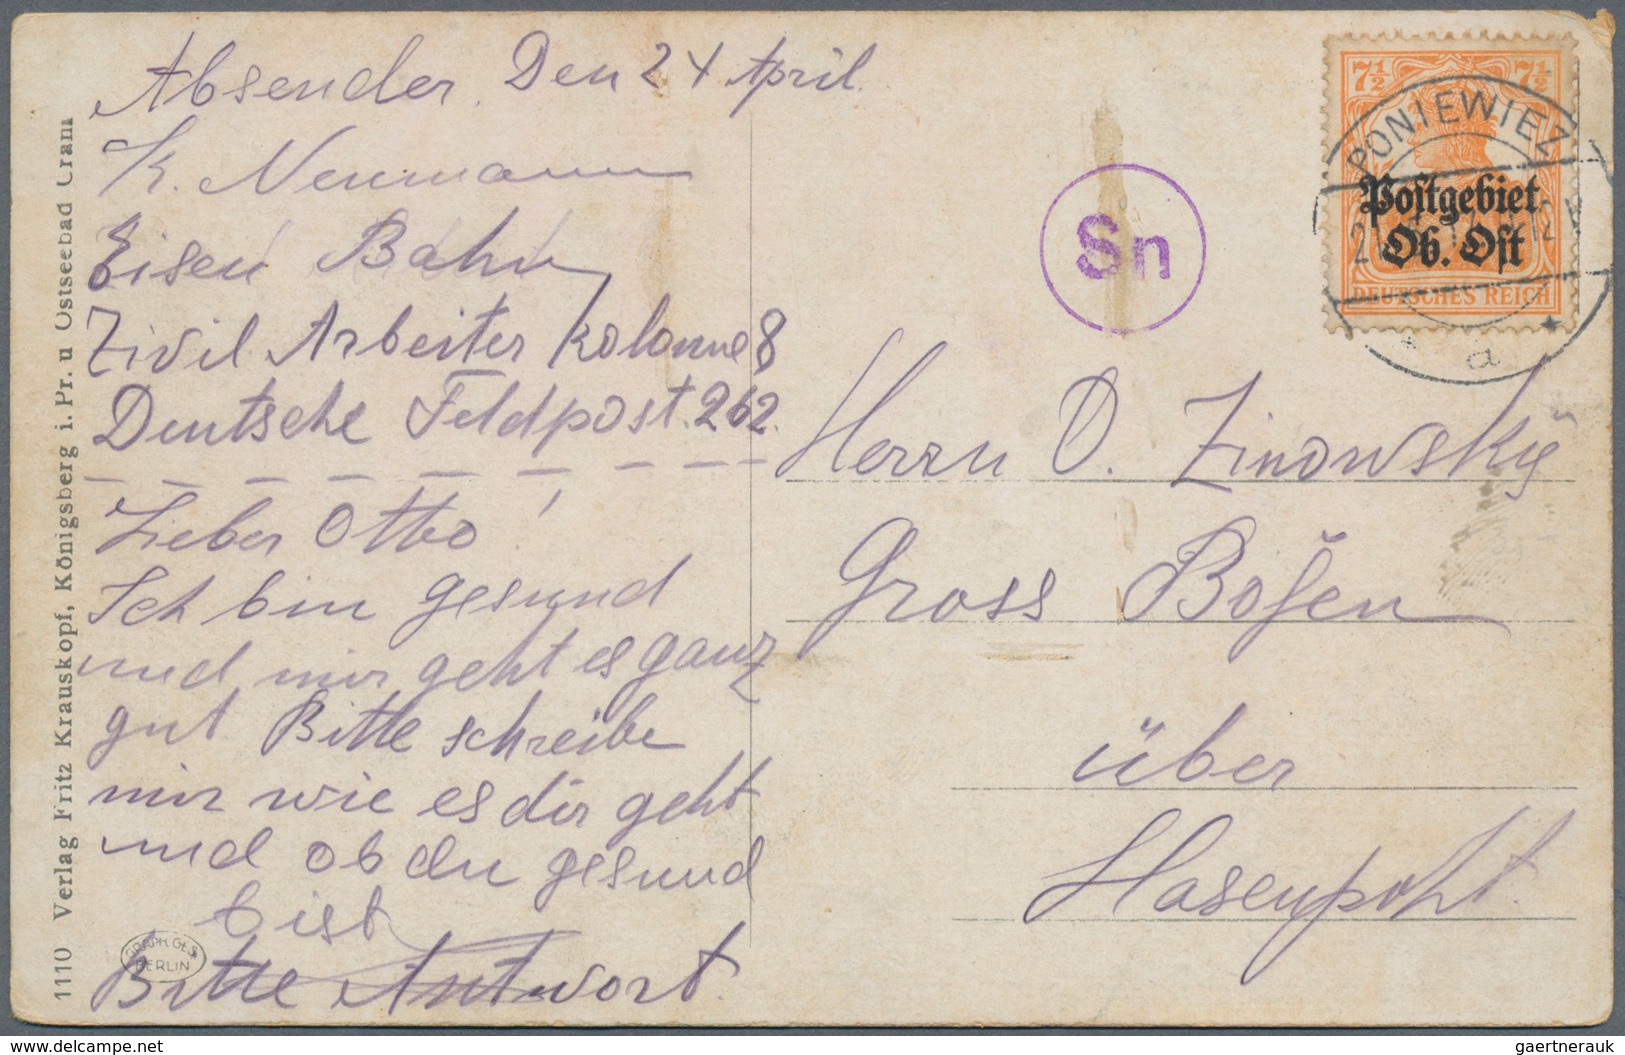 Absender. Den 24 April.
K. Neumann
Eisen Bahn
Zivil Arbeiter Kolonne 8
Deutsche Feldpost. 262.
Lieber Otto!
Ich bin gesund
und mir geht es ganz
gut Bitte schreibe
mir wie es dir geht
und ob du gesund
bist
Bitte Antwort.
1110 Verlag Fritz Krauskopf, Königsberg i. Pr. u Ostseebad Cranz
GRAPH. GES.
BERLIN
Sn
7½ 7½
PONIEWIEZ
Postgebiet
Ob. Ost
DEUTSCHES REICH
* a *
Herrn O. Zinowsky
Gross Bojen
über
Hasenpoht.
delcampe.net
gaertnerauk